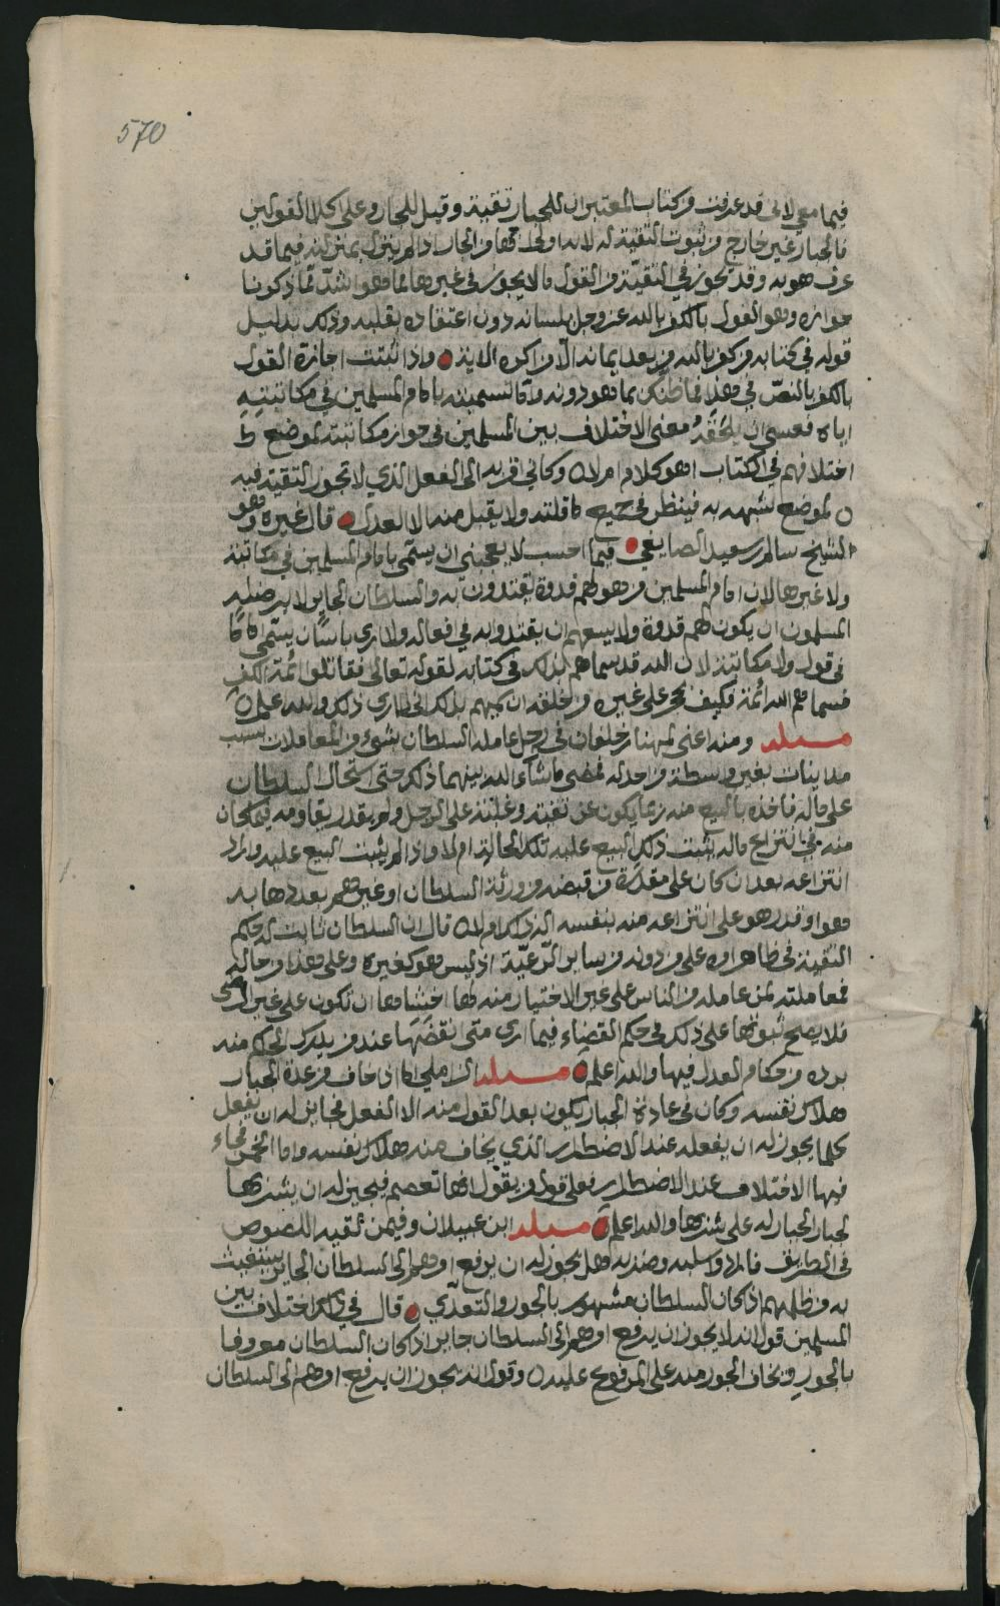 570
فيما معي لاني قد عرفت من كتاب المعتبر ان للجبار تقية وقيل للجار وعلى كلا القولين
فالجبار غير خارج من ثبوت التقية له لانه اولى بها من الجار اذا لم ينزل بمنزلته فيما قد
عرف هو به وقد تجوز في التقيّة من القول ما لا يجوز في غيرها مما هو اشدّ مما ذكرنا
جوازه وهو القول بالكفر بالله عز وجل بلسانه دون اعتقاده بقلبه وذلك بدليل
قوله في كتابه من كفر بالله من بعد ايمانه الا من اكره الاية واذا ثبتت اجازة القول
بالكفر بالنصّ في هذا فما ظنك بما هو دونه واما تسميته بامام المسلمين في مكاتبتِهِ
اياه فعسى ان يلحَقَهُ معنى الاختلاف بين المسلمين في جواز مكاتبته لموضع
اختلافهم في الكتاب اهو كلام ام لا وكاني اقربه الى الفعل الذي لا تجوز التقية فيه
لموضع تشبهه به فينظر في جميع ما قلته ولا يقبل منه الا العدل قال غيره وهو
الشيخ سالم بن سعيد الصايغي فيما احسب لا يعجبني ان يسمى بامام المسلمين في مكاتبته
ولا غيرها لان امام المسلمين من هو لهم قدوة يقتدون به والسلطان الجاير لا يرضاه
المسلمون ان يكون لهم قدوة ولا يسعهم ان يقتدوا به في فعاله ولا ارى باسًا ان يسمّى امامًا
في قول ولا مكاتبة لان الله قد سماهم بذلك في كتابه لقوله تعالى فقاتلوا ائمة الكفر
فسماهم الله ائمة فكيف على غيره من خلقه ان يسميهم بذلك اني لا ارى ذلك والله اعلم
مسئلة ومنه اعني مهنا بن خلفان في رجل عامله السلطان بشيء من المعاملات بسبب
مداينات بغير واسطة من احد له فمضى ما شاء الله بينهما ذلك حتى استحال السلطان
على ماله فاخذه بالبيع منه ربما يكون عن تقية وغلبته على الرجل ولم يقدر يقاومه فيما كان
منه في انتزاع ماله يثبت ذلك البيع عليه بتلك الحالة ام لا واذا لم يثبت البيع عليه واراد
انتزاعه بعد ان كان على مقدرة من قبضه من ورثة السلطان او غيرهم بعد ذهابه
هو او قدر هو على انتزاعه منه بنفسه الذلك ام لا قال ان السلطان ثابت له حكم
التقية في ظاهر امره على من دونه من ساير الرّعيّة اذ ليس هو كغيره وعلى هذا من حاله
فمعاملته لمن عامله من الناس على غير الاختيار منه لها اخشاها ان تكون على غير الرضى
فلا يصح ثبوتها على ذلك في حكم القضاء فيما ارى متى نقضَهَا عند من يدرك الحكم منه
برده من حكام العدل فيها والله اعلم مسئلة الزاملي اما اذا خاف من عدة الجبار
هلاك نفسه وكان في عادة الجبار يكون بعد القول منه الا الفعل فجايز له ان يفعل
كلما يجوز له ان يفعله عند الاضطرار الذي يخاف منه هلاك نفسه واما الخمر فجاء
فيها الاختلاف عند الاضطرار فعلى قول من يقول انها تعصم فيجيز له ان يشربها
لجبار الجبار له على شربها والله اعلم مسئلة ابن عبيدان وفيمن لقيه اللصوص
في الطريق وسلبه وضربه هل يجوز له ان يرفع امرهم الى السلطان الجاير يستغيث
به من ظلمهم اذ كان السلطان مشهور بالجور والتعدّي قال في ذلك اختلاف بين
المسلمين قول انه لا يجوز ان يرفع امرهم الى السلطان جاير اذا كان السلطان معروفا
بالجور ويخاف الجور منه على المرفوع عليه وقول انه يجوز ان يرفع امرهم الى السلطان